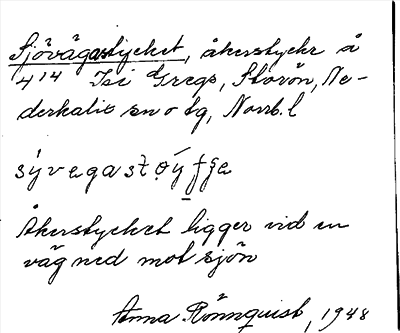 Sjövägastycket, åkerstycke å
4 14 Isi Gregs, Storön, Ne-
derkalix sn o tg, Norrb. l
Åkerstycket ligger vid en
väg ned mot sjön
Anna Rönnquist, 1948